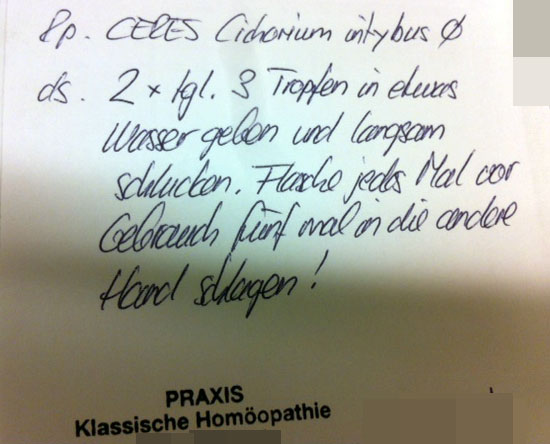 Rp. CERES Cichorium intybus Ø
ds. 2 x tgl. 3 Tropfen in etwas
Wasser geben und langsam
schlucken. Flasche jedes Mal vor
Gebrauch fünf mal in die andere
Hand schlagen!
PRAXIS
Klassische Homöopathie